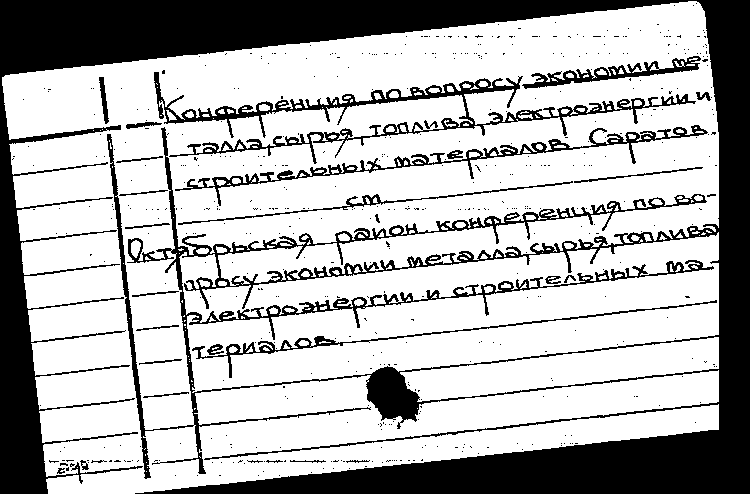 Конференция по вопросу экономии ме-
талла, сырья, топлива, электроэнергии и
строительных материалов. Саратов.
см.
Октябрьская район. конференция по во-
просу экономии металла, сырья, топлива
электроэнергии и строительных ма-
териалов.